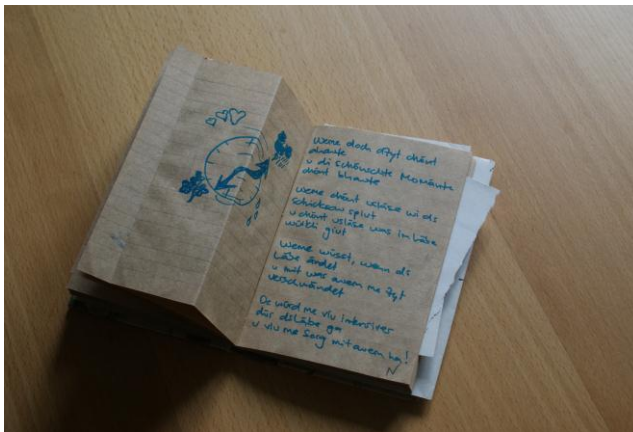 Weme doch d'Zyt chönt
ahaute
u di schönschte Momänte
chönt bhaute
Weme chönt usläse wi ds
Schicksau spiut
u chönt usläse was im Läbe
würkli giut
Weme wüsst, wenn ds
Läbe ändet
u mit was auem me Zyt
verschwändet
De würd me viu intensiver
dür ds Läbe ga
u viu me Sorg mit auem ha!
N